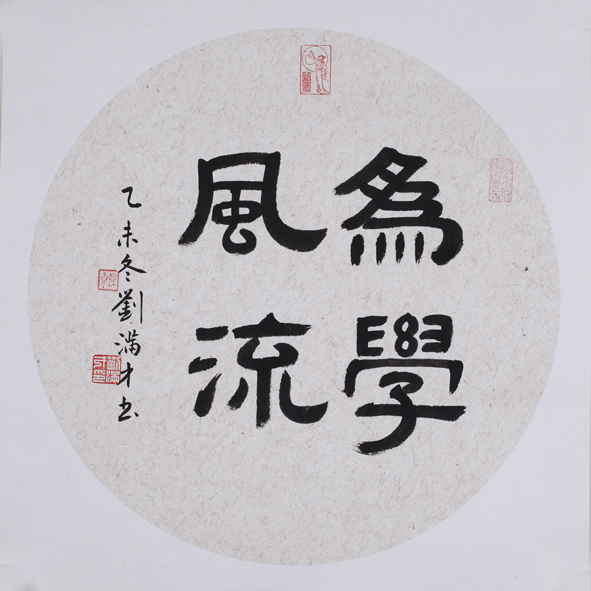 為學
風流
乙未冬劉滿才书